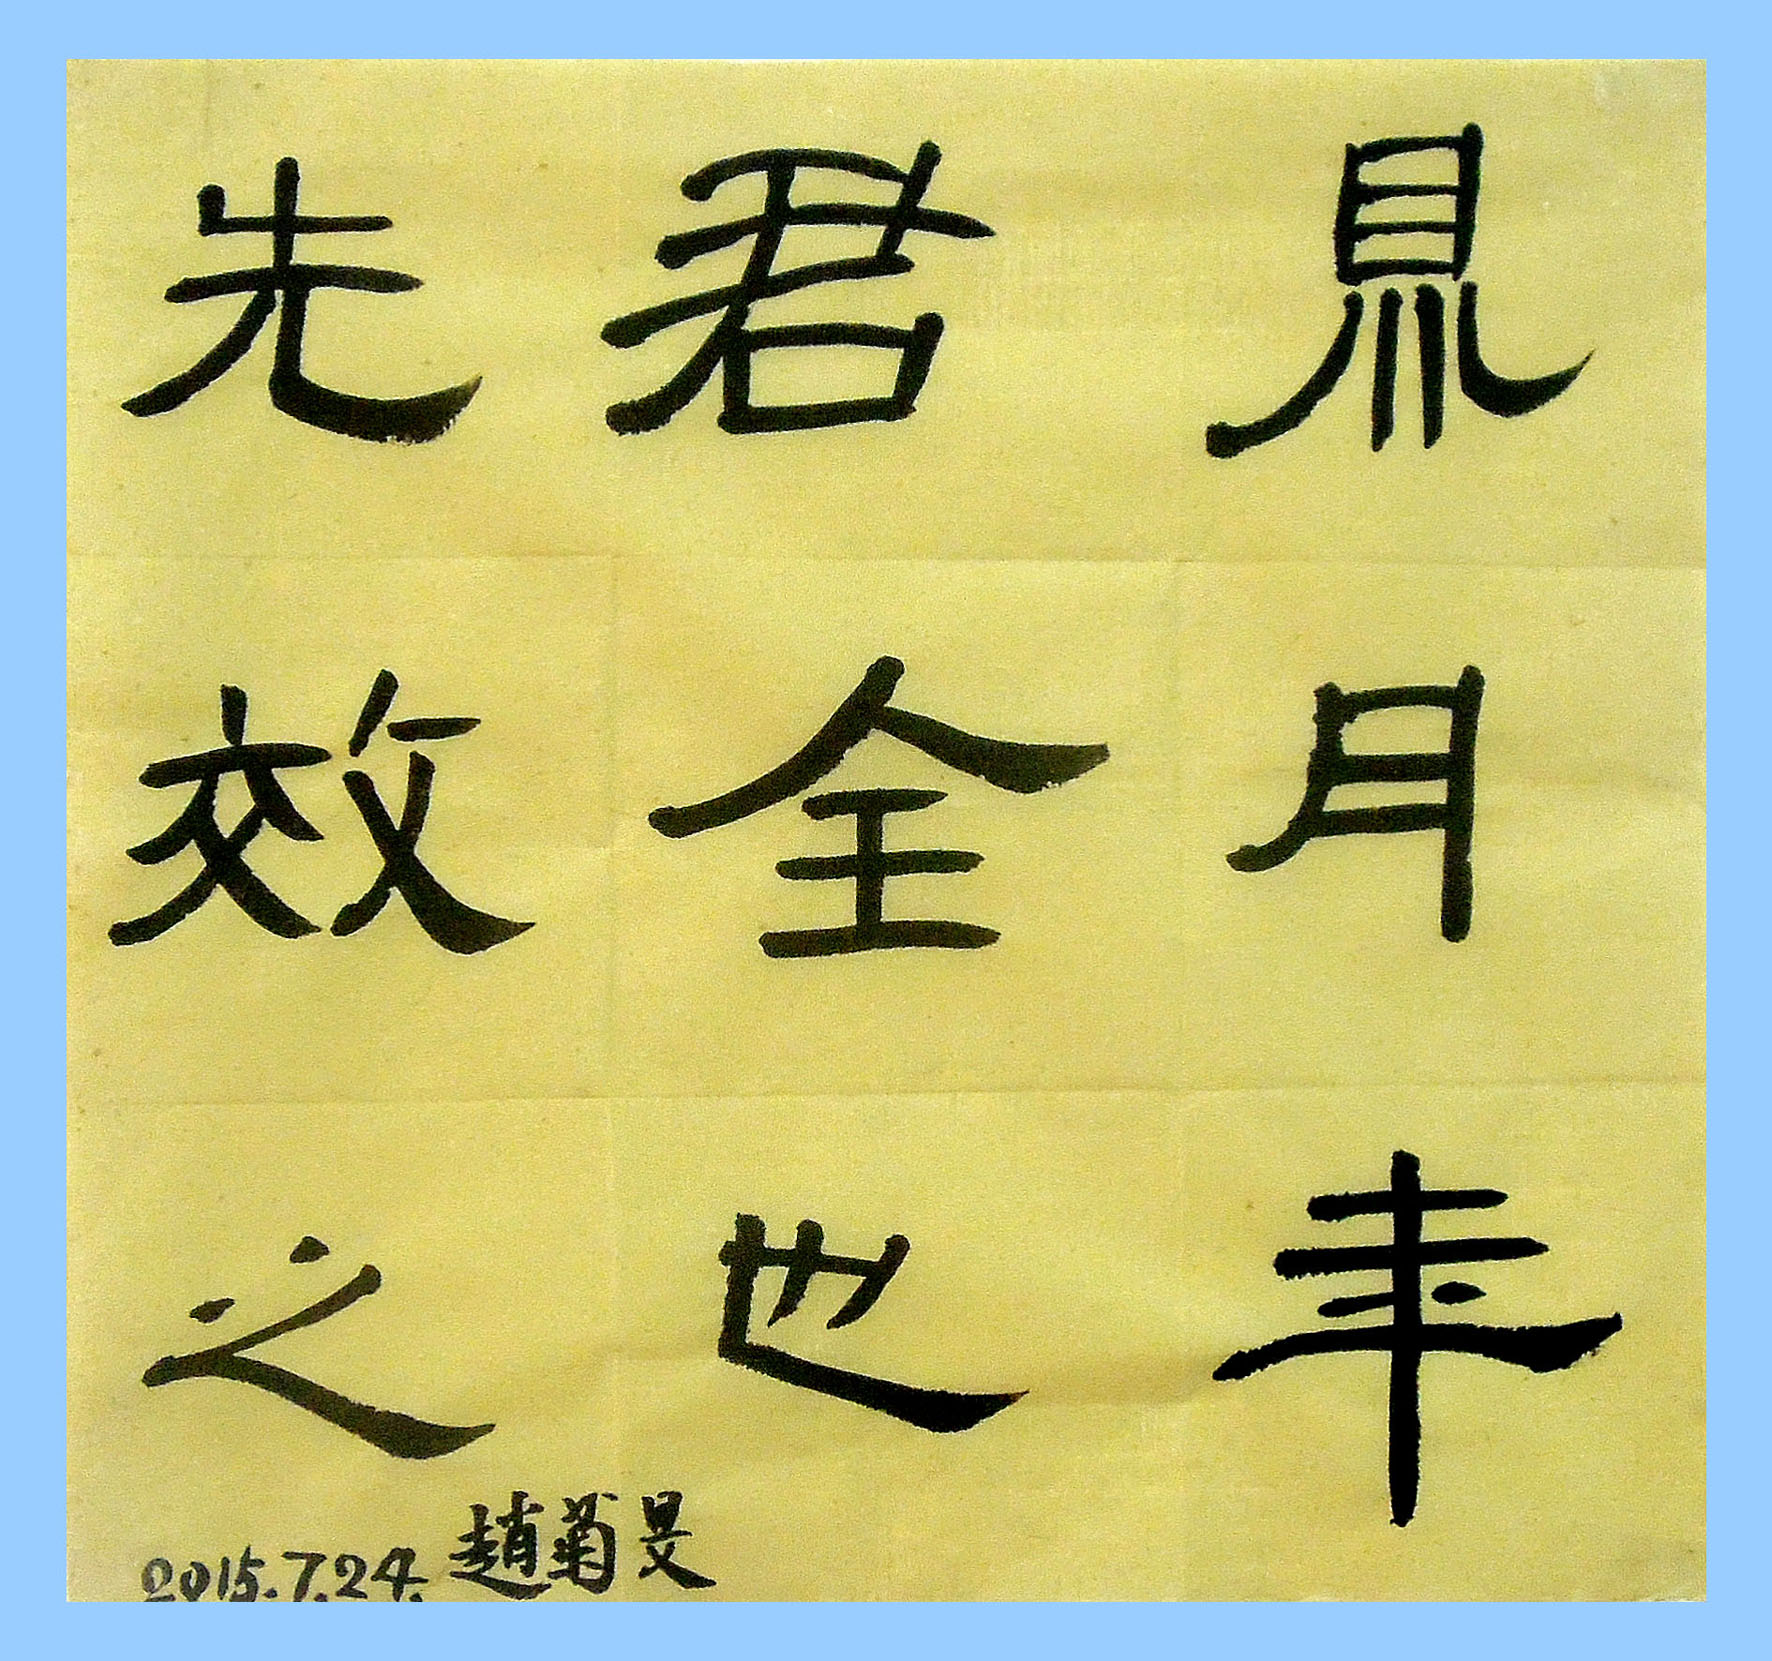 月年
君全也
先效之
2015.7.24. 趙菊旻